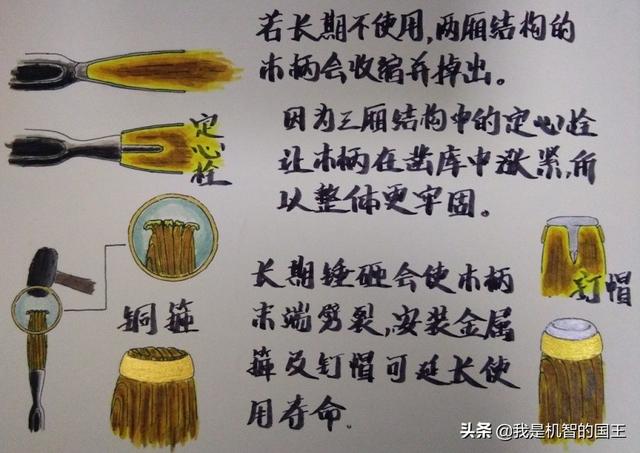 若长期不使用,两厢结构的
木柄会收缩并掉出。
定心栓
因为三厢结构中的定心栓
让木柄在凿库中涨紧,所
以整体更牢固。
铜箍
长期锤砸会使木柄
末端劈裂,安装金属
箍及钉帽可延长使
用寿命。
钉帽
头条 @我是机智的国王